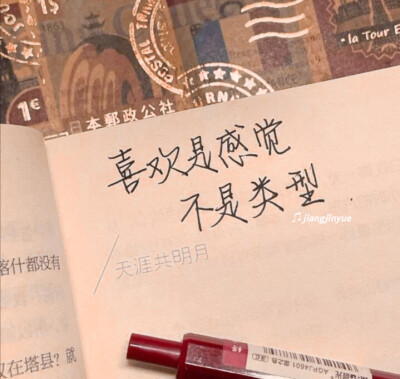 la Tour E
POSTAL
1€
日本郵政公社
喜欢是感觉
不是类型
♫ jiangjinyue
天涯共明月
喀什都没有
在塔县？就
AGPJ4601